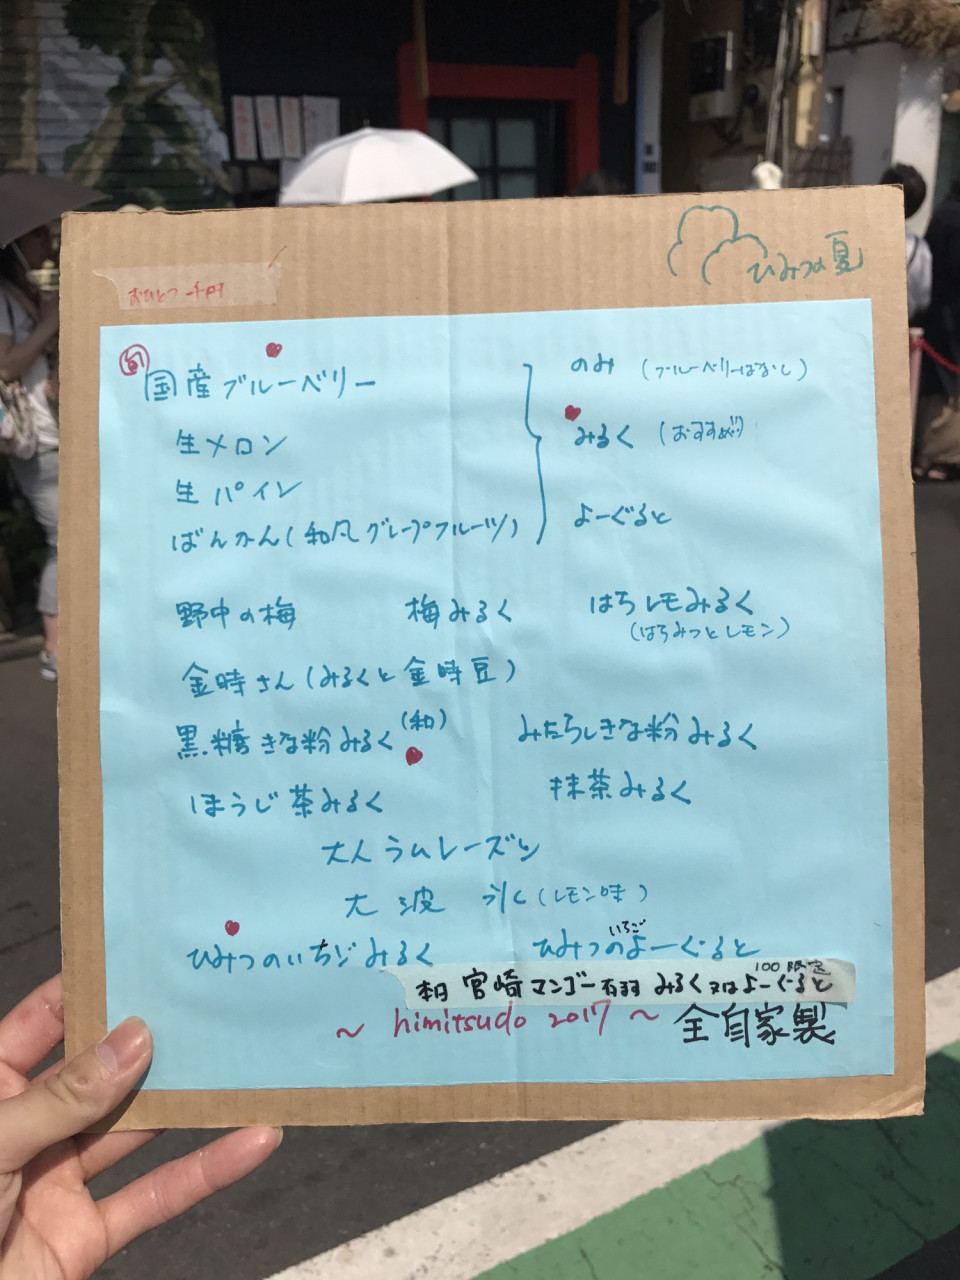 ひみつの夏
おひとつ 千円
旬
国産ブルーベリー
生メロン
生パイン
ばんかん(和風グレープフルーツ)
のみ (ブルーベリーはなし)
みるく (おすすめ!!)
よーぐると
野中の梅 梅みるく はちレモみるく
(はちみつとレモン)
金時さん(みるくと金時豆)
黒糖きな粉みるく(和) みたらしきな粉みるく
ほうじ茶みるく 抹茶みるく
大人ラムレーズン
大波 氷(レモン味)
ひみつのいちごみるく ひみつのいちごよーぐると
本日 宮崎マンゴー みるく又はよーぐると 100限定
~ himitsudo 2017 ~ 全自家製